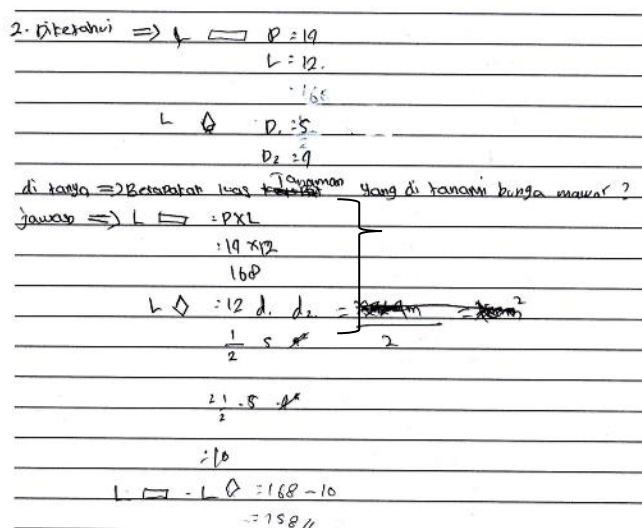 2. Diketahui => L ▭ P = 14
L = 12.
= 168
L ◊ D1 = 5
D2 = 4
di tanya => Berapakah luas Tanaman yang di tanami bunga mawar ?
jawab => L ▭ = P X L
: 14 x 12
168
L ◊ : 12 d. d2. =
1/2 5 4 2
2 1/2 . 5 . 4
: 10
L ▭ - L ◊ : 168 - 10
= 158 //